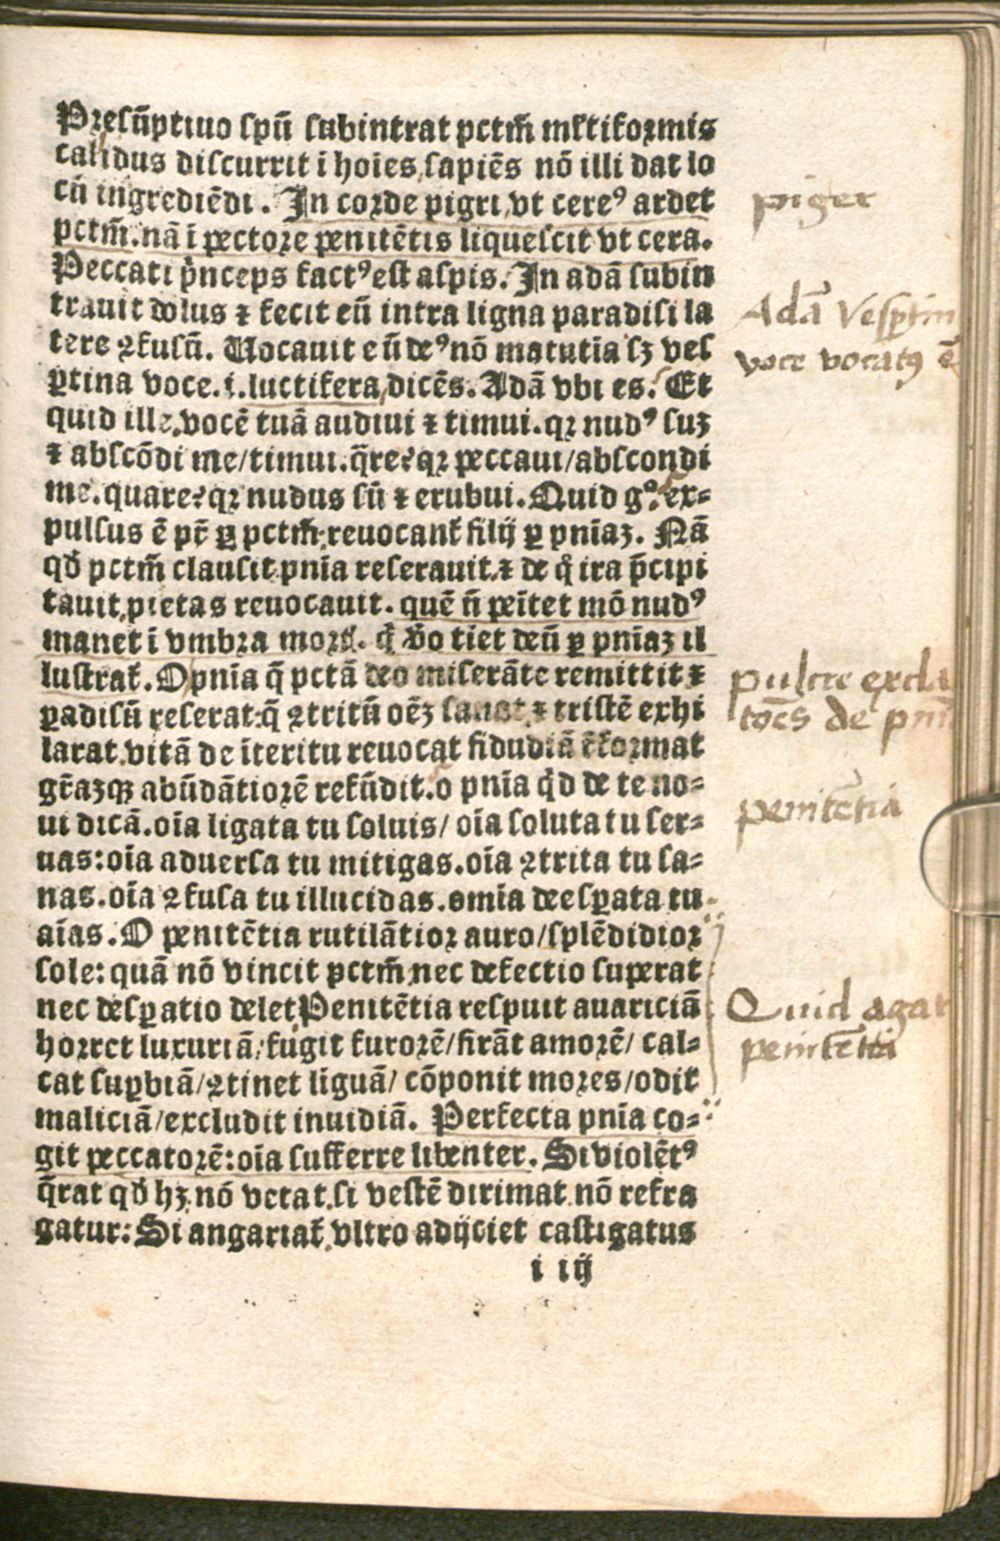 Presūptiuo spū subintrat pctm̄ mltiformis
calidus discurrit ī hoīes, sapiēs nō illi dat lo
cū ingrediēdi. In corde pigri, vt cereꝰ ardet
pctm̄. nā ī pectore penitētis liquescit vt cera.
Peccati p̄nceps factꝰ est aspis. In adā subin
trauit dolus ⁊ fecit eū intra ligna paradisi la
tere ꝯfusū. Uocauit eū deꝰ nō matutīa sꝫ ves
ꝑtina voce. i. luctifera, dicēs. Adā vbi es. Et
quid ille, vocē tuā audiui ⁊ timui. qꝛ nudꝰ suꝫ
⁊ abscōdi me/timui. q̄re? qꝛ peccaui/abscondi
me. quare? qꝛ nudus sū ⁊ erubui. Quid gͦ. ex-
pulsus ē pr̄ ꝑ pctm̄, reuocant̄ filij ꝑ pnīaꝫ. Nā
qđ pctm̄ clausit, pnīa reserauit. ⁊ de q̊ ira p̄cipi
tauit, pietas reuocauit. quē n̄ peītet mō nudꝰ
manet ī vmbra mort̄. q̇ v̄o tīet deū ꝑ pnīaꝫ il
lustrat̄. O pnīa q̄ pctā deo miserāte remittit ⁊
ꝑadisū reserat: q̄ ꝯtritū oēꝫ sanat, ⁊ tristē exhi
larat. vitā de īteritu reuocat fidudiā r̄format
gr̄aꝫqꝫ abūdātiorē refūdit. o pnīa q̇d de te no-
ui dicā. oīa ligata tu soluis/ oīa soluta tu ser-
uas: oīa aduersa tu mitigas. oīa ꝯtrita tu sa-
nas. oīa ꝯfusa tu illucidas. omīa desꝑata tu
aīas. O penitētia rutilātior auro/splēdidior
sole: quā nō vincit pctm̄, nec defectio superat
nec desꝑatio delet, Penitētia respuit auariciā
horret luxuriā, fugit furorē/firāt amorē/ cal-
cat suꝑbiā/ꝯtinet līguā/ cōponit mores/odit
maliciā/excludit inuidiā. Perfecta pnīa co-
git peccatorē: oīa sufferre libenter. Si violētꝰ
q̄rat qđ hꝫ, nō vetat. si vestē dirimat, nō refra
gatur: Si angariat̄, vltro adijciet castigatus
i iij
piger
Adā Vesꝑtin
voce vocatꝰ ē
pulcre excla
tōes de pnī
penitētia
Quid agat
penitētia